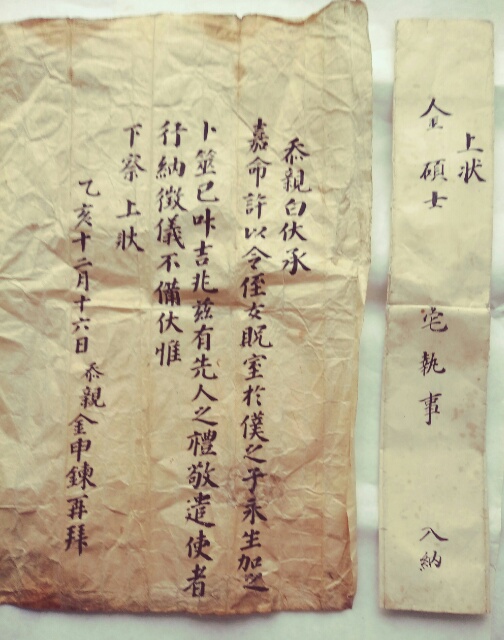 上状
金碩士 宅執事 入納
忝親白伏承
嘉命許以令侄女貺室於僕之子永生加之
卜筮已叶吉兆玆有先人之禮敬遣使者
行納徵儀不備伏惟
下察 上狀
乙亥十二月十六日 忝親金申鍊再拜